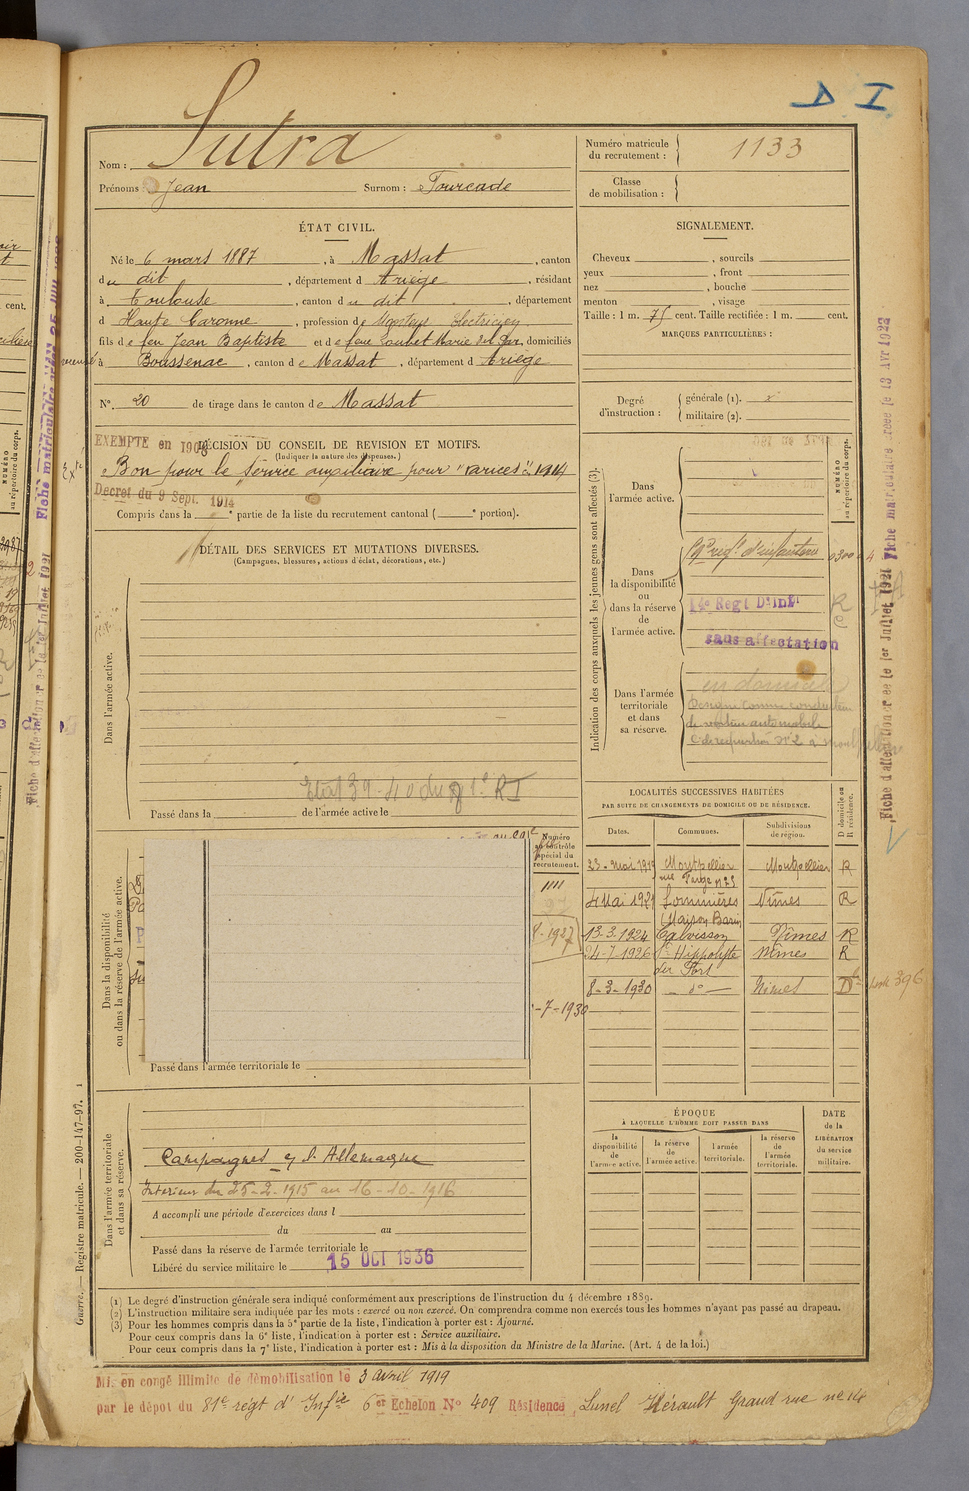 D I
Nom : Sutra
Prénoms : Jean Surnom : Fourcade
Numéro matricule
du recrutement : 1133
Classe
de mobilisation :
ÉTAT CIVIL.
Né le 6 mars 1887, à Massat, canton
du dit, département d Ariège, résidant
à Toulouse, canton du dit, département
d Haute Garonne, profession de Monteur Electricien,
fils de feu Jean Baptiste et de feue Loubet Marie, domiciliés
à Boussenac, canton de Massat, département d Ariège
N°. 20 de tirage dans le canton de Massat
SIGNALEMENT.
Cheveux , sourcils
yeux , front
nez , bouche
menton , visage
Taille : 1 m. 75 cent. Taille rectifiée : 1 m. cent.
MARQUES PARTICULIÈRES :
Degré
d'instruction :
générale (1).
militaire (2).
EXEMPTÉ en 1908
DÉCISION DU CONSEIL DE REVISION ET MOTIFS.
(Indiquer la nature des dispenses.)
Bon pour le service auxiliaire pour "varices" 1914
Décret du 9 Sept. 1914
Compris dans la e partie de la liste du recrutement cantonal ( e portion).
DÉTAIL DES SERVICES ET MUTATIONS DIVERSES.
(Campagnes, blessures, actions d'éclat, décorations, etc.)
Dans l'armée active.
Passé dans la de l'armée active le
Indication des corps auxquels les jeunes gens sont affectés (3).
NUMÉRO
au répertoire du corps.
Dans
l'armée active.
Dans
la disponibilité
ou
dans la réserve
de
l'armée active.
14e Regt D'Infie
sans affectation
Dans l'armée
territoriale
et dans
sa réserve.
Désigné comme conducteur
de voiture automobile
Fiche d'affectation créée le 1er Juillet 1921
Fiche matriculaire créée le 13 Avr 1923
LOCALITÉS SUCCESSIVES HABITÉES
PAR SUITE DE CHANGEMENTS DE DOMICILE OU DE RÉSIDENCE.
Dates. Communes. Subdivisions de région. D domicile ou R résidence.
23 - mai 1919 Montpellier Montpellier R
4 Mai 1921 Sommières Nîmes R
13-3-1924 Calvisson Nîmes R
24-7-1926 St Hippolyte du Fort Nîmes R
8-3-1930 d° Nimes D
Numéro
au contrôle
spécial du
recrutement.
Dans la disponibilité
ou dans la réserve de l'armée active.
8-1927
-7-1930
Passé dans l'armée territoriale le
Dans l'armée territoriale
et dans sa réserve.
Campagnes c/ l'Allemagne
Intérieur du 25-2-1915 au 16-10-1916
A accompli une période d'exercices dans l
du au
Passé dans la réserve de l'armée territoriale le
Libéré du service militaire le 15 OCT 1936
ÉPOQUE
À LAQUELLE L'HOMME DOIT PASSER DANS
la disponibilité de l'armée active.
la réserve de l'armée active.
l'armée territoriale.
la réserve de l'armée territoriale.
DATE de la LIBÉRATION du service militaire.
Guerre. — Registre matricule. — 200-147-97.
(1) Le degré d'instruction générale sera indiqué conformément aux prescriptions de l'instruction du 4 décembre 1889.
(2) L'instruction militaire sera indiquée par les mots : exercé ou non exercé. On comprendra comme non exercés tous les hommes n'ayant pas passé au drapeau.
(3) Pour les hommes compris dans la 5e partie de la liste, l'indication à porter est : Ajourné.
Pour ceux compris dans la 6e liste, l'indication à porter est : Service auxiliaire.
Pour ceux compris dans la 7e liste, l'indication à porter est : Mis à la disposition du Ministre de la Marine. (Art. 4 de la loi.)
Mis en congé illimité de démobilisation le 3 avril 1919
par le dépôt du 81e régt d'Infie 6er Echelon No 409 Résidence Lunel Hérault Grand rue